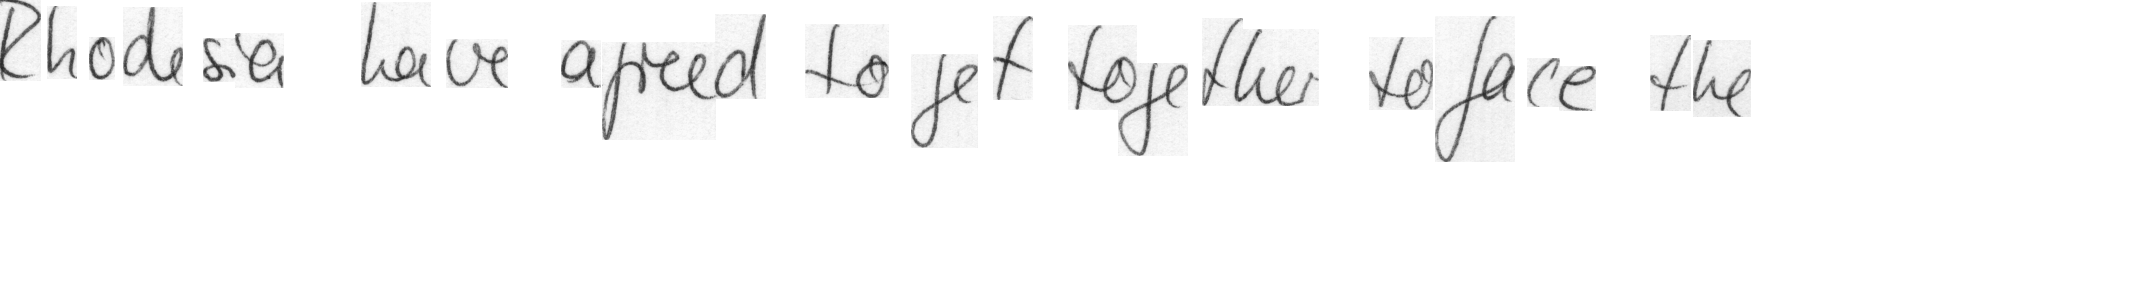 Rhodesia have agreed to get together to face the